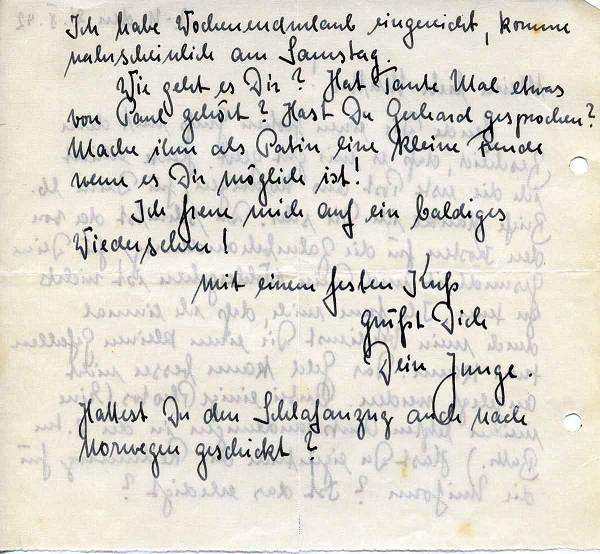 Ich habe Wochenendurlaub eingereicht, komme
wahrscheinlich am Samstag.
Wie geht es Dir? Hat Tante Mal etwas
von Paul gehört? Hast Du Gerhard gesprochen?
Mache ihm als Patin eine kleine Freude
wenn es Dir möglich ist!
Ich freue mich auf ein baldiges
Wiedersehn!
Mit einem festen Kuß
grüßt Dich
Dein Junge.
Hattest Du den Schlafanzug auch nach
Norwegen geschickt?